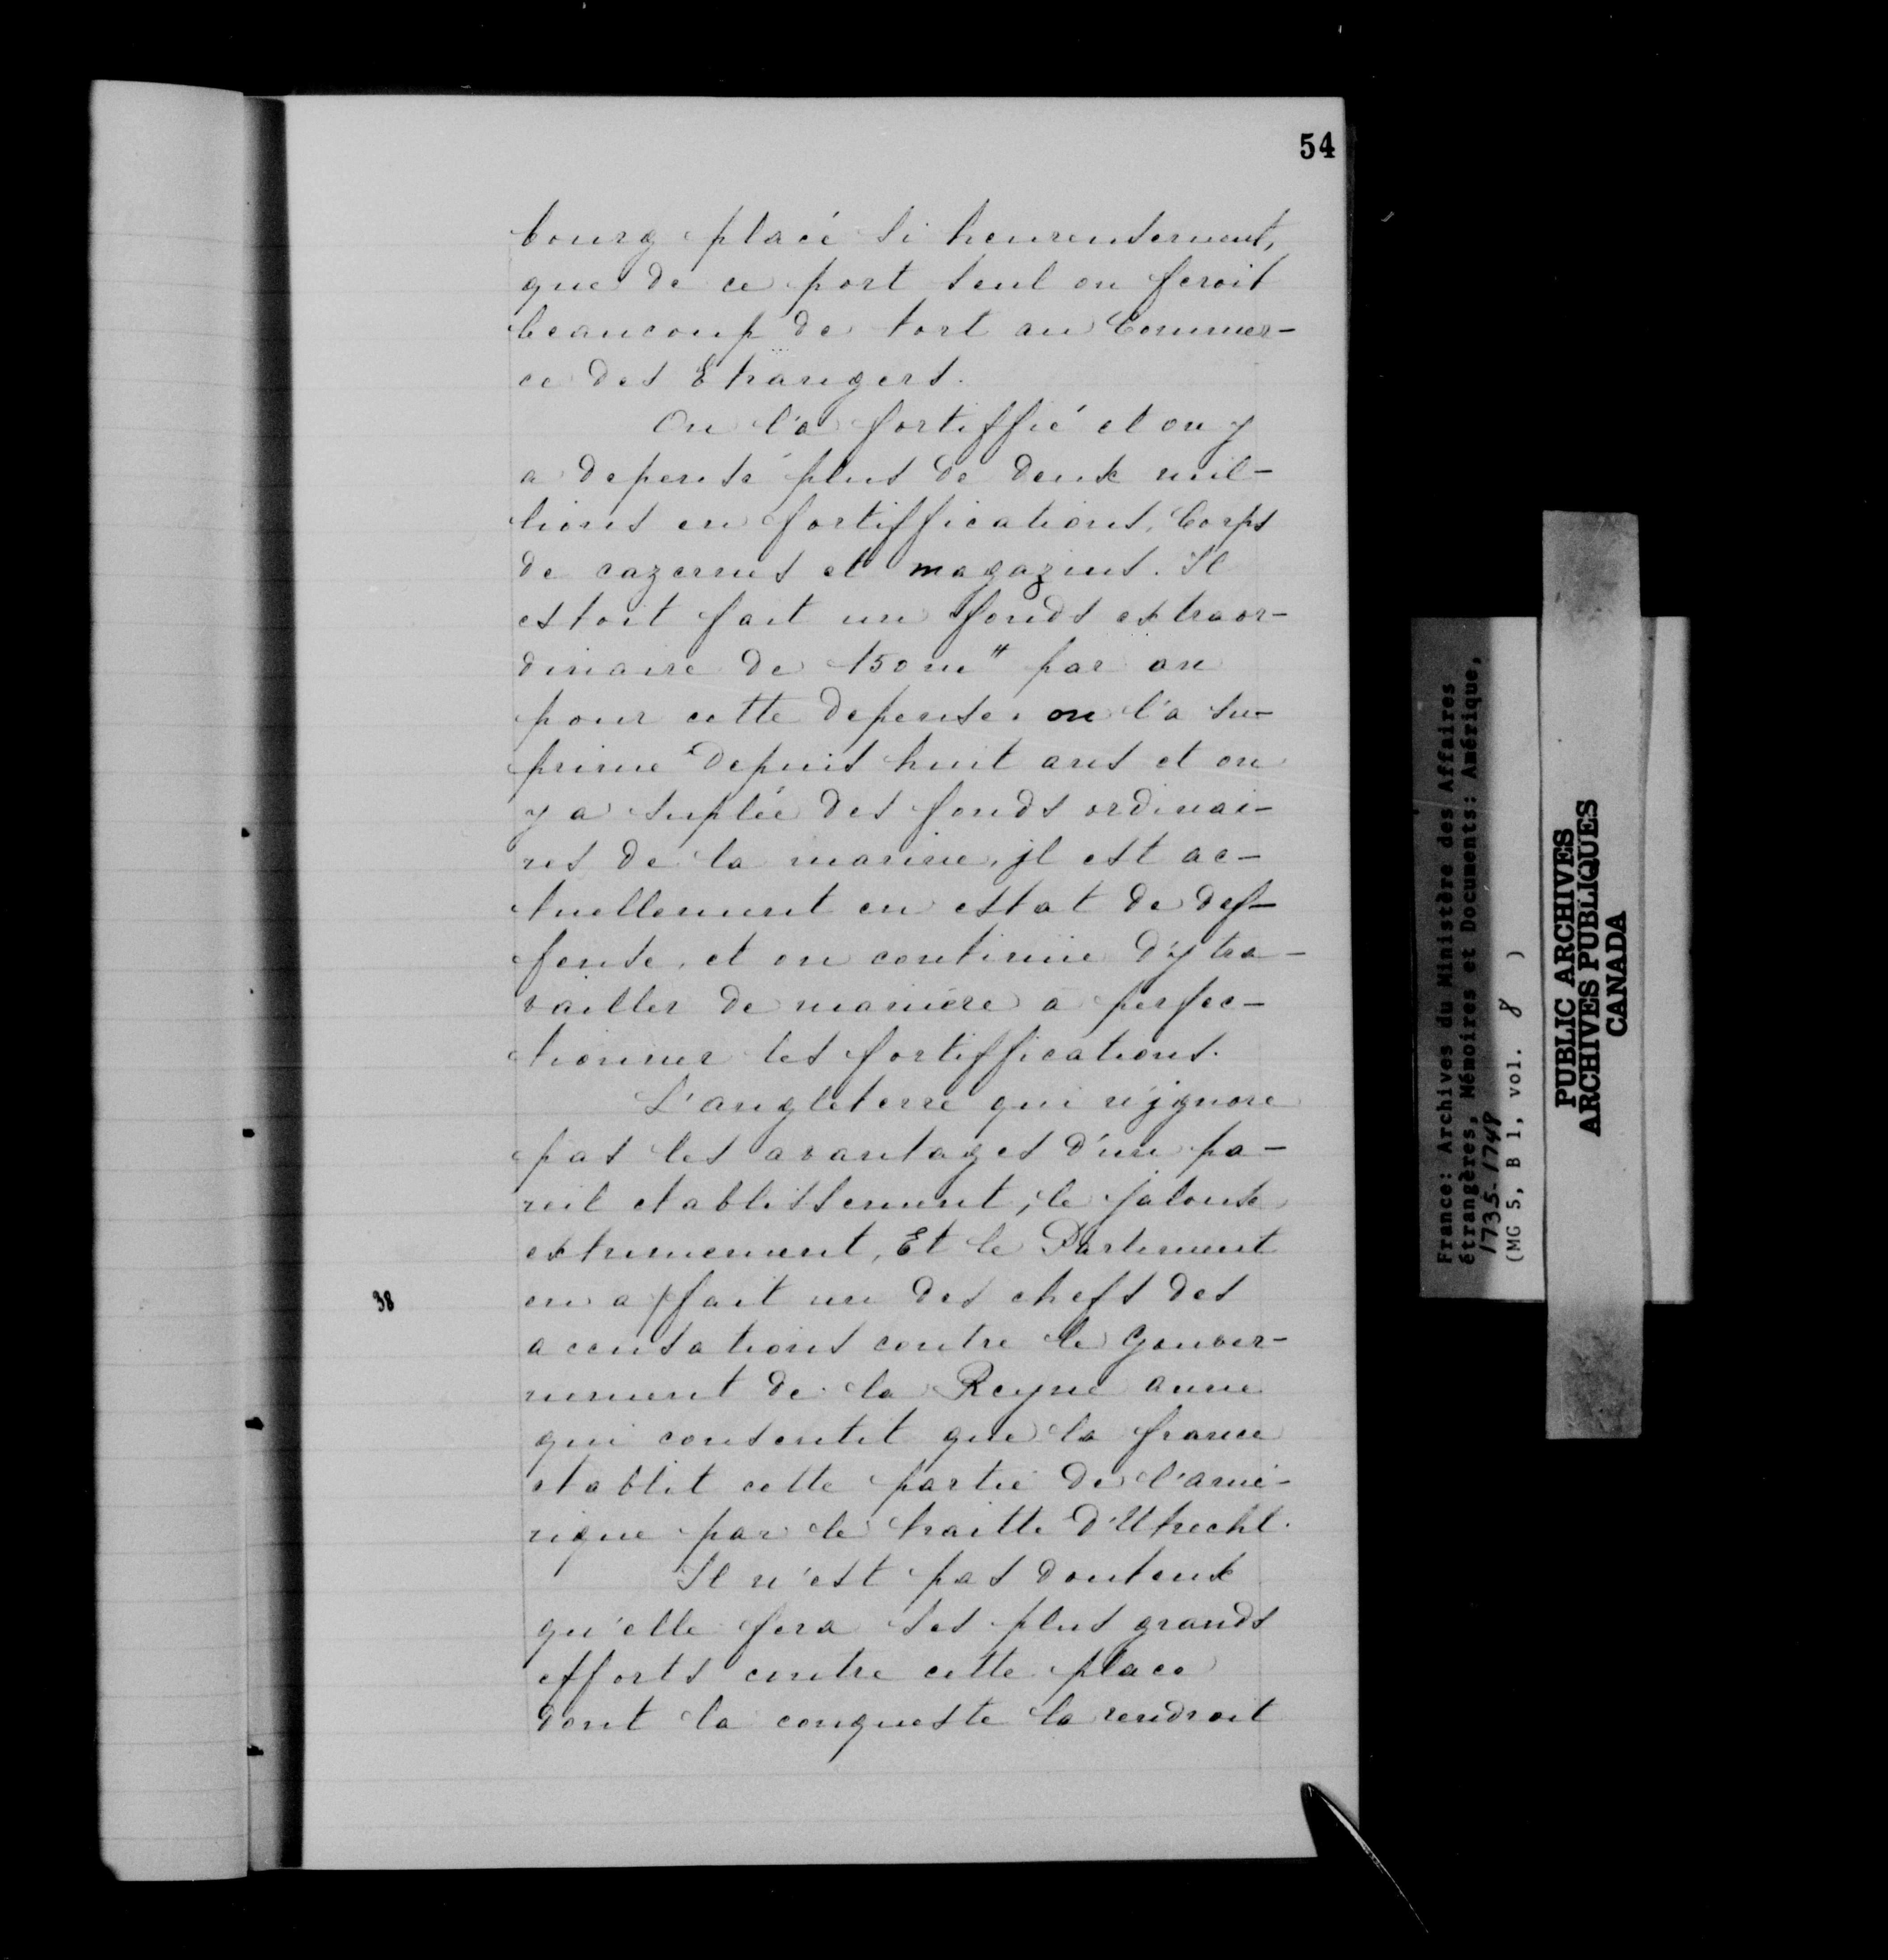 54
bourg placé si heureusement,
que de ce port seul on feroit
beaucoup de tort au Commer-
ce des Etrangers.
On l'a fortiffié et on y
a depensé plus de deux mil-
lions en fortiffications, Corps
de cazernes et magazins. Il
estoit fait un fonds extraor-
dinaire de 150 m₶ par an
pour cette depense, on l'a su-
primé depuis huit ans et on
y a suplée des fonds ordinai-
res de la marine, jl est ac-
tuellement en estat de def-
fense, et on continüe d'y tra-
vailler de maniére a perfec-
tionner les fortiffications.
L'angleterre qui n'jgnore
pas les avantages d'un pa-
reil etablissement, le jalouse
extremement, Et le Parlement
en a fait un des chefs des
accusations contre le Gouver-
nement de la Reyne anne
qui consentit que la france
etablit cette partie de l'amé-
rique par le traitte d'Utrecht.
Il n'est pas douteux
qu'elle fera ses plus grands
efforts contre cette place
dont la conqueste la rendroit
38
France: Archives du Ministère des Affaires
étrangères, Mémoires et Documents: Amérique,
1735-1748
(MG 5, B 1, vol. 8 )
PUBLIC ARCHIVES
ARCHIVES PUBLIQUES
CANADA